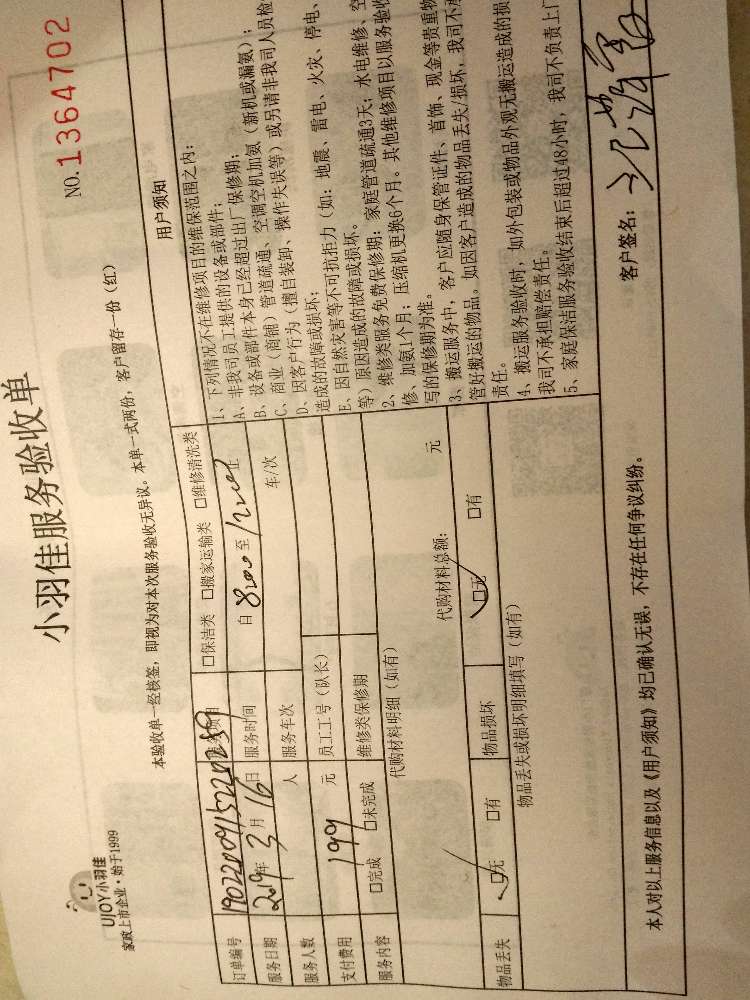 UJOY小羽佳
家政上市企业·始于1999
小羽佳服务验收单
NO.1364702
本验收单一经核签，即视为对本次服务验收无异议。本单一式两份，客户留存一份（红）
订单编号
服务项目 □保洁类 □搬家运输类 □维修清洗类
服务日期 2019年3月16日 服务时间 自8:00至12:00止
服务人数 人 服务车次 车/次
支付费用 199元 员工工号（队长）
服务内容 □完成 □未完成 维修类保修期
代购材料明细（如有） 代购材料总额： 元
物品丢失 □无 □有 物品损坏 □无 □有
物品丢失或损坏明细填写（如有）
用户须知
1、下列情况不在维修项目的维保范围之内：
A、非我司员工提供的设备或部件；
B、设备或部件本身已经超过出厂保修期；
C、商业（商铺）管道疏通、空调空机加氨（新机或漏氨）；
D、因客户行为（擅自装卸、操作失误等）或另请非我司人员检
造成的故障或损坏；
E、因自然灾害等不可抗拒力（如：地震、雷电、火灾、停电、
等）原因造成的故障或损坏。
2、维修类服务免费保修期：家庭管道疏通3天；水电维修、空
修、加氨1个月；压缩机更换6个月。其他维修项目以服务验收
写的保修期为准。
3、搬运服务中，客户应随身保管证件、首饰、现金等贵重物
管好搬运的物品。如因客户造成的物品丢失/损坏，我司不承
责任。
4、搬运服务验收时，如外包装或物品外观无搬运造成的损
我司不承担赔偿责任。
5、家庭保洁服务验收结束后超过48小时，我司不负责上门
本人对以上服务信息以及《用户须知》均已确认无误，不存在任何争议纠纷。
客户签名：